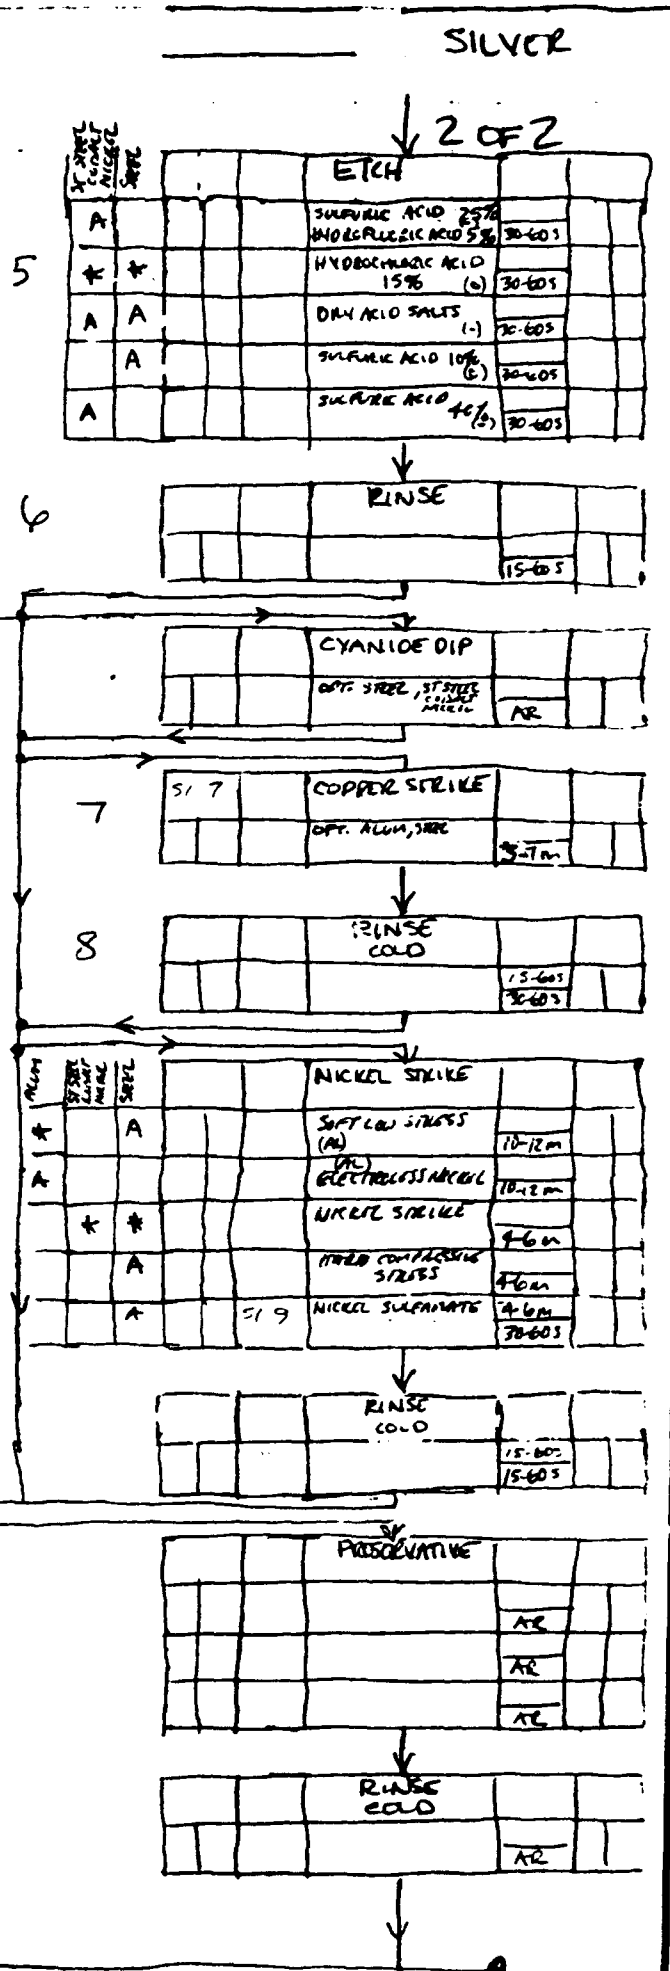 SILVER
2 OF 2
ST STEEL
COBALT
NICKEL
STEEL
ETCH
A
SULFURIC ACID 25%
HYDROFLUORIC ACID 5%
30-60S
5
*
*
HYDROCHLORIC ACID
15%
30-60S
A
A
DRY ACID SALTS
(-)
30-60S
A
SULFURIC ACID 10%
30-60S
A
SULFURIC ACID
30-60S
6
RINSE
15-60S
CYANIDE DIP
OPT. STEEL, ST STEEL
COBALT
NICKEL
AR
7
51 7
COPPER STRIKE
OPT. ALUM, STEEL
5-7m
8
RINSE
COLD
15-60S
30-60S
ALUM
ST STEEL
COBALT
NICKEL
STEEL
NICKEL STRIKE
*
A
SOFT LOW STRESS
(AL)
10-12m
A
(AL)
ELECTROLESS NICKEL
10-12m
*
*
NICKEL STRIKE
4-6m
A
HARD COMPRESSIVE
STRESS
4-6m
A
51 9
NICKEL SULFAMATE
4-6m
30-60S
RINSE
COLD
15-60S
15-60S
PRESERVATIVE
AR
AR
AR
RINSE
COLD
AR